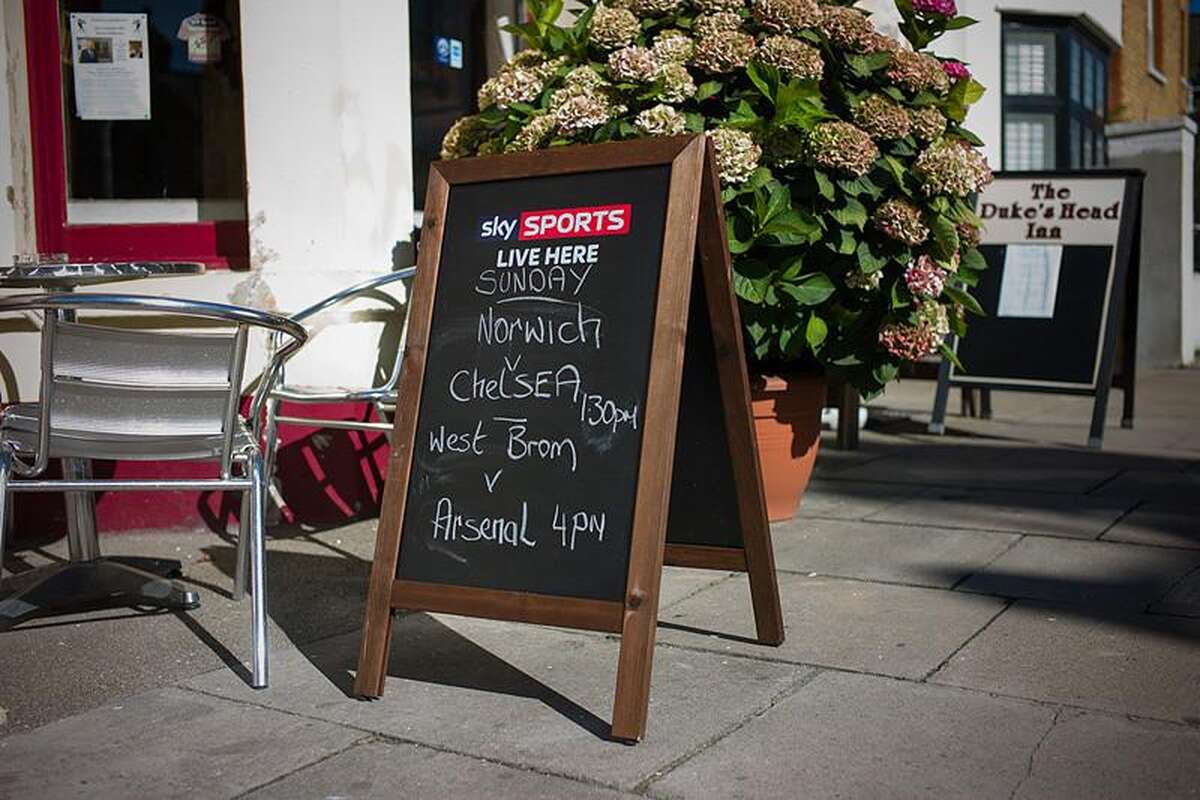 sky SPORTS
LIVE HERE
SUNDAY
Norwich
v
ChelSEA 130pm
West Brom
v
Arsenal 4PM
The
Duke's Head
Inn